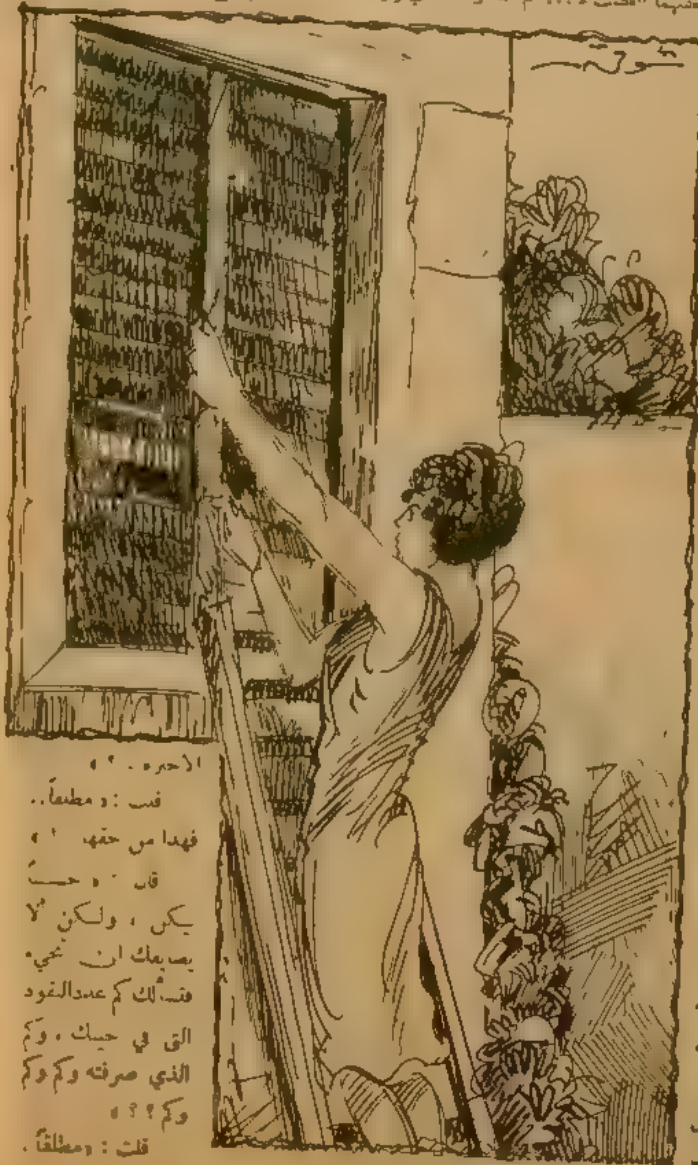 الأخيرة . ؟ »
قلت : « مطلقاً ..
فهذا من حقها ! »
قال : « حسناً
يكن ، ولكن ألا
يضايقك ان تجيء
فتسألك كم عدد النقود
التي في جيبك ، وكم
الذي صرفته وكم وكم
وكم ؟ ؟ »
قلت : « مطلقاً .